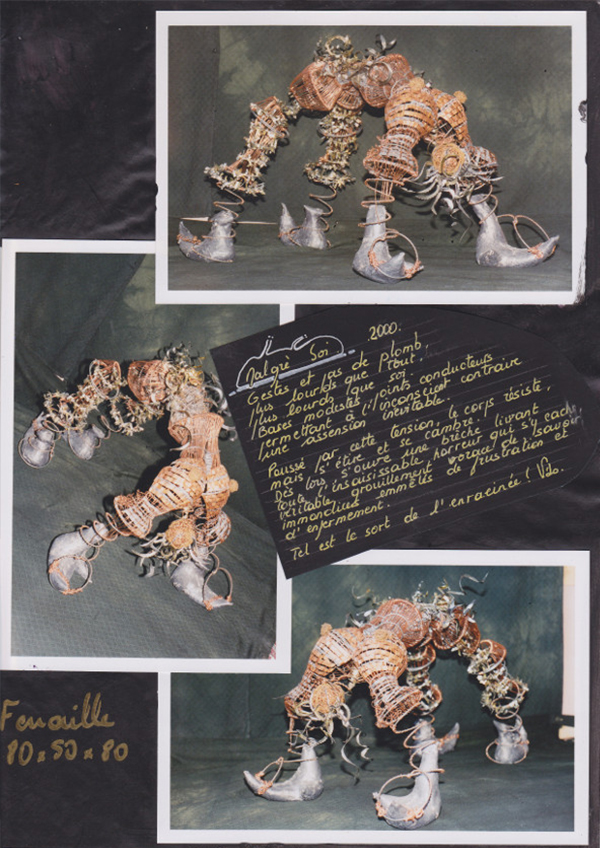 2000.
Malgré Soi
Gestes et pas de Plomb,
plus lourds que tout,
plus lourds que soi.
Bases modestes, joints conducteurs
permettant à l'inconscient contraire
une ascension inévitable.
Poussé par cette tension, le corps résiste,
mais s'étire et se cambre.
Dès lors s'ouvre une brèche livrant
toute l'insaisissable horreur qui s'y cache,
véritable grouillement vorace de savoir
immondices emmêlés de frustration et
d'enfermement.
Tel est le sort de l'enracinée ! Vdo.
Ferraille
80 x 50 x 80